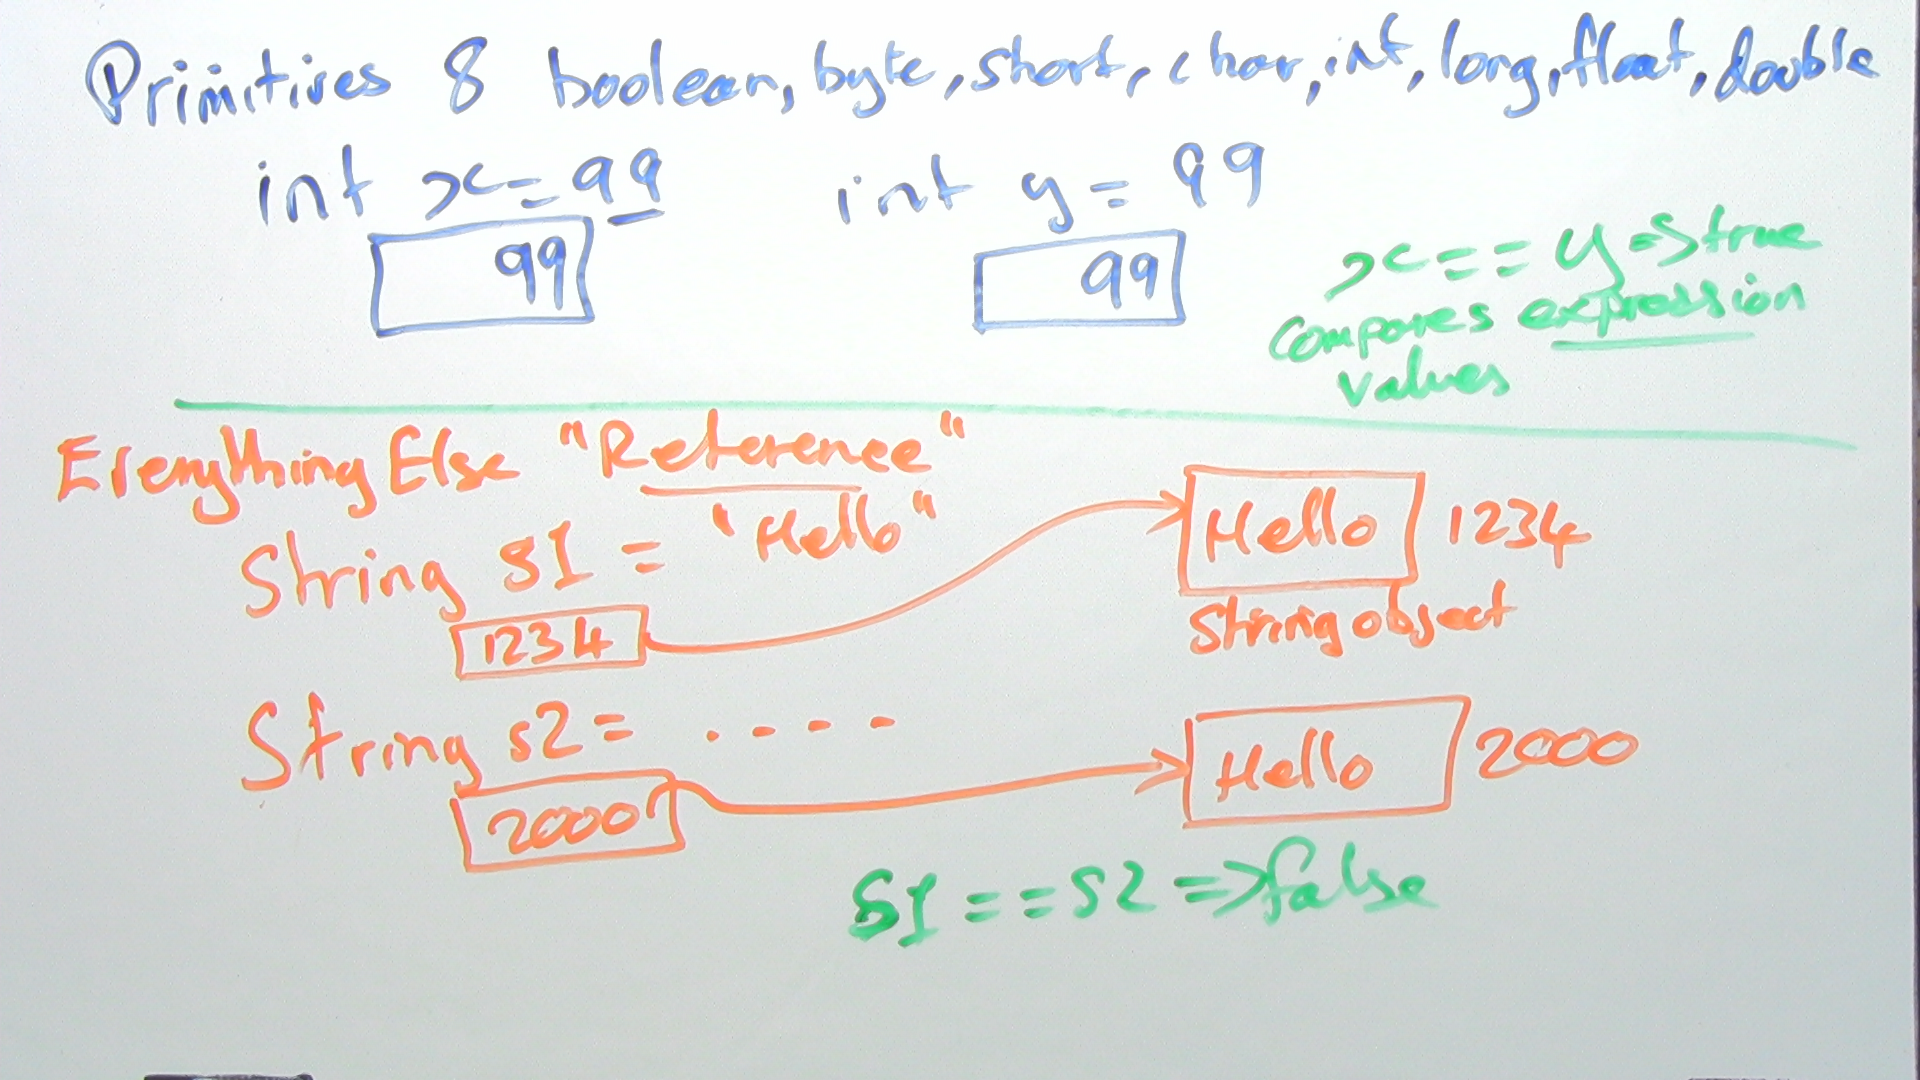 Primitives 8 boolean, byte, short, char, int, long, float, double
int x = 99
int y = 99
99
99
x == y => true
compares expression
values
Everything Else "Reference"
String s1 = "Hello"
Hello 1234
1234
String object
String s2 = . - - -
Hello 2000
2000
S1 == S2 => false